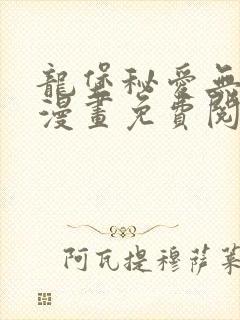 龍堡秘愛無
漫畫免費閱
阿瓦提穆萨莱